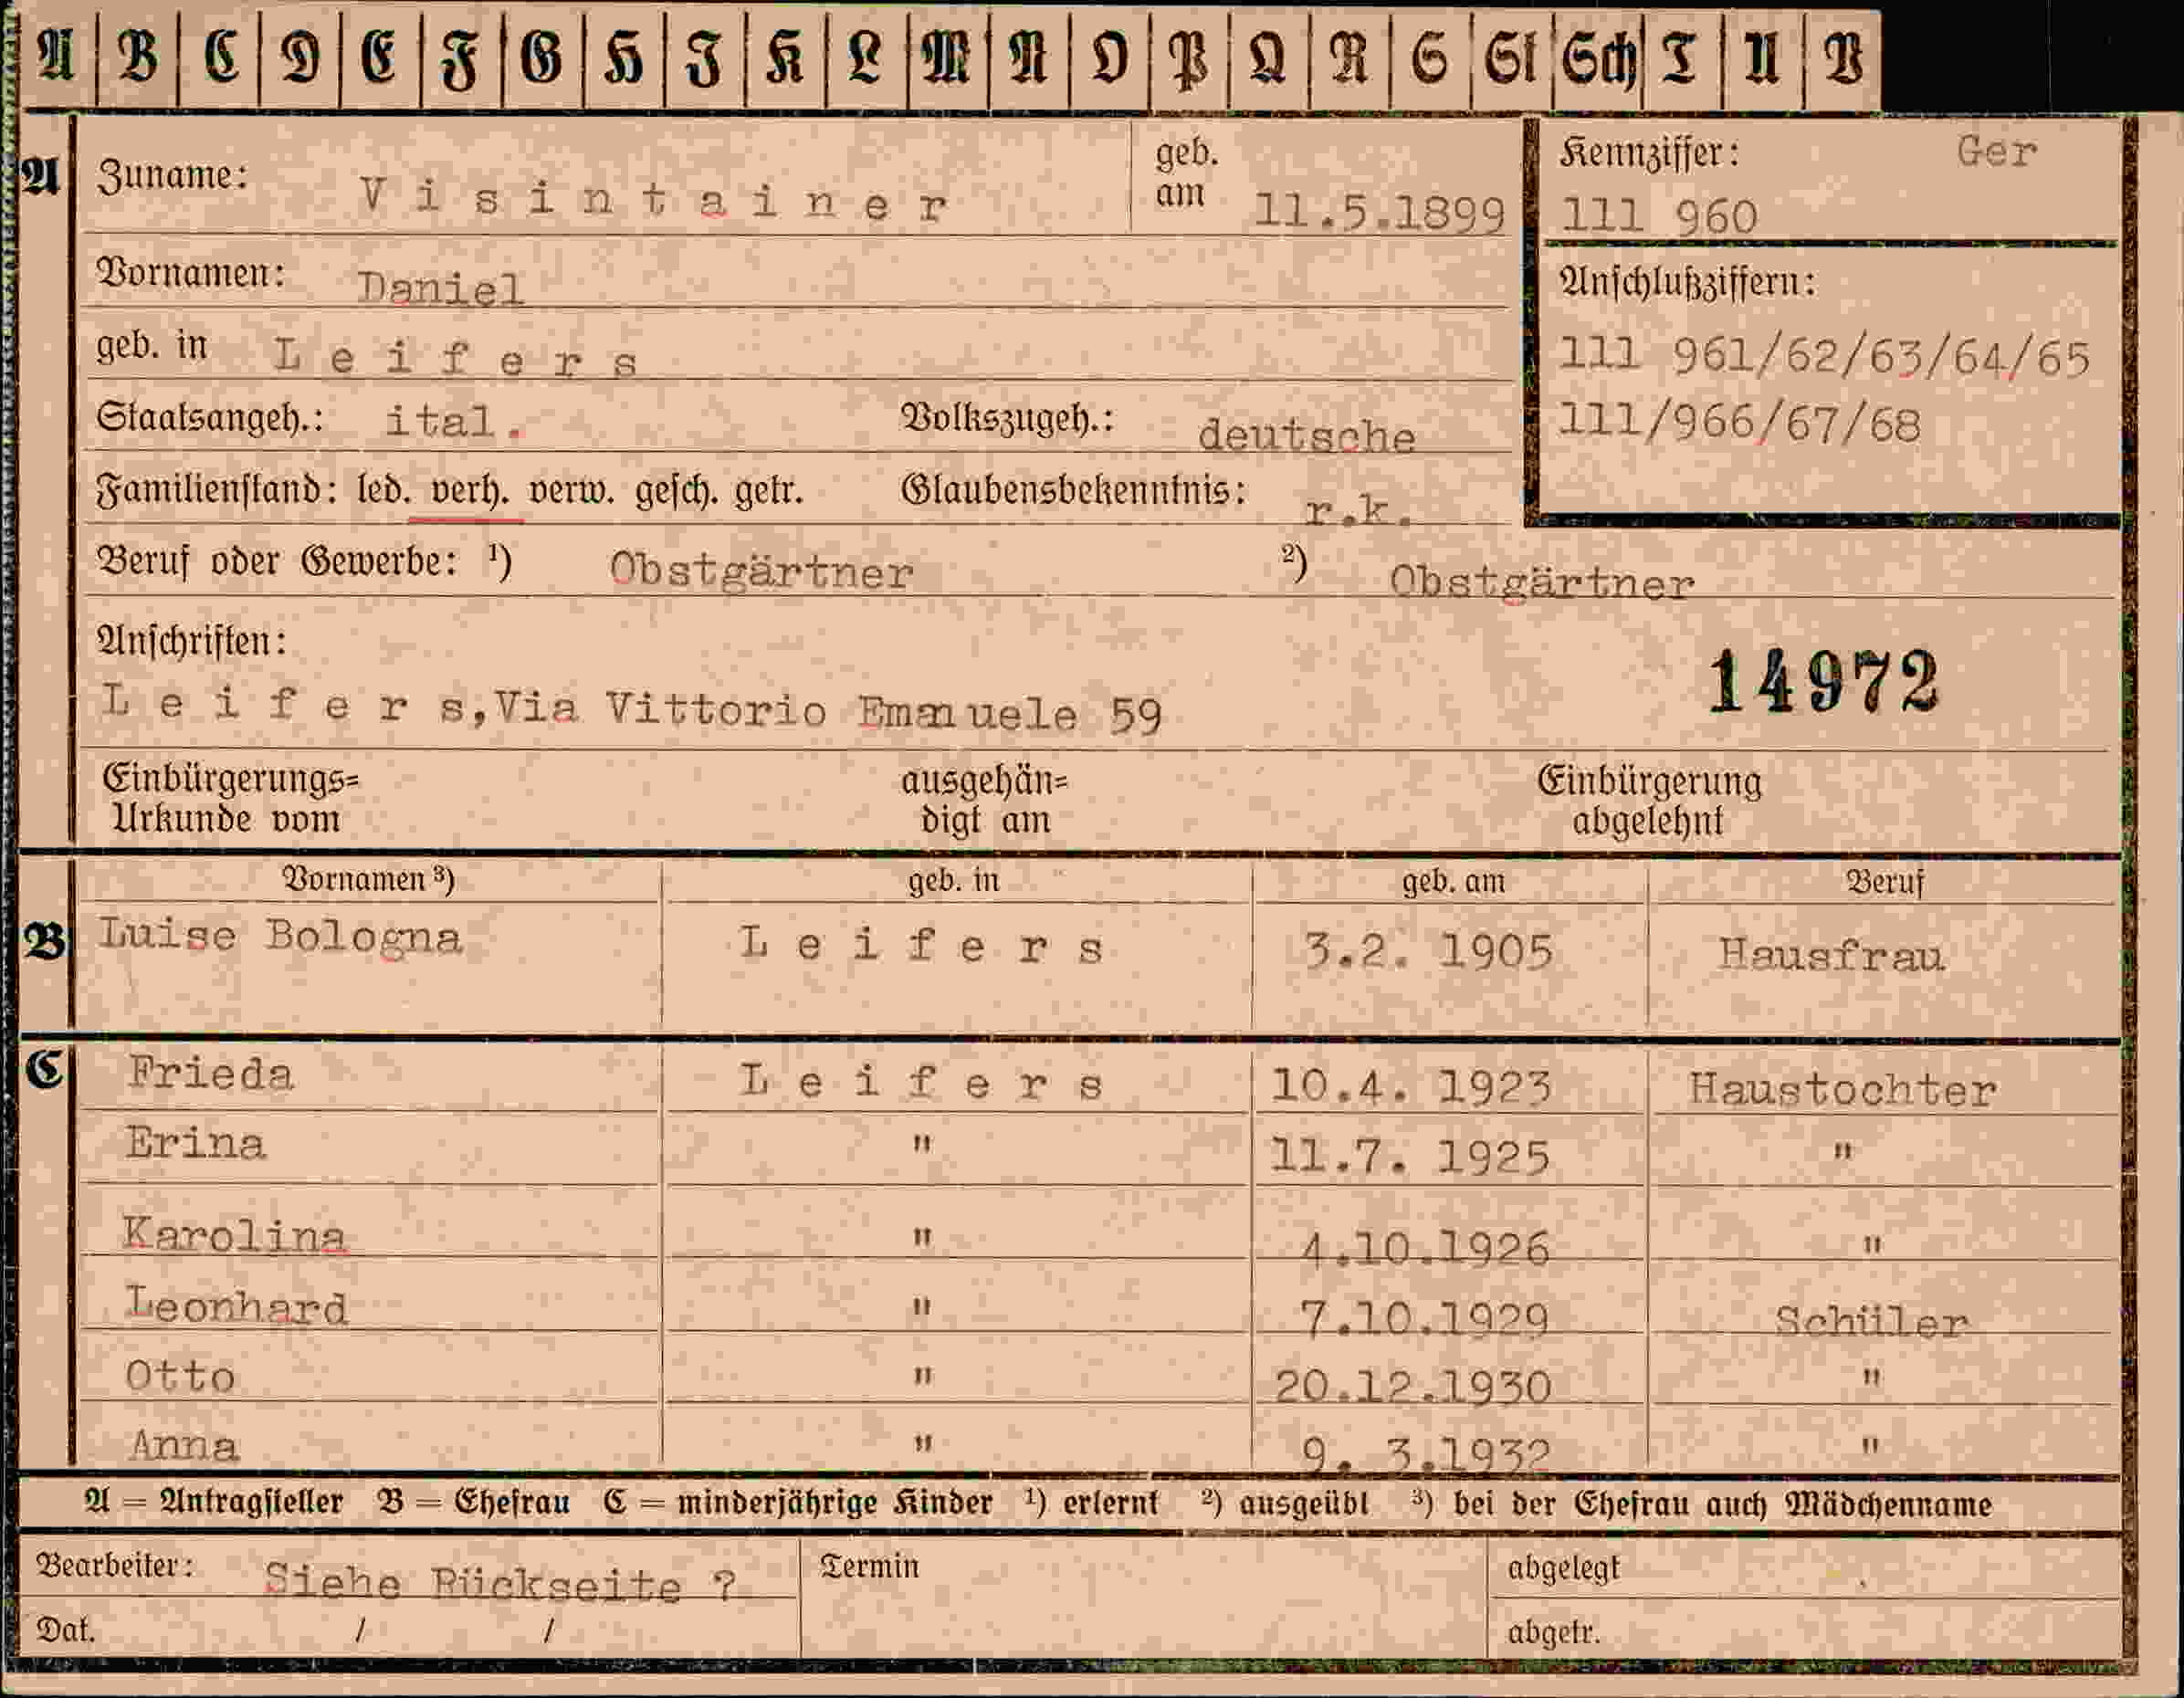 A B C D E F G H I K L M N O P Q R S St Sch T U V
A Zuname: Visintainer geb. am 11.5.1899 Kennziffer: Ger
111 960
Vornamen: Daniel Anschlußziffern:
geb. in Leifers 111 961/62/63/64/65
Staatsangeh.: ital. Volkszugeh.: deutsche 111/966/67/68
Familienstand: led. verh. verw. gesch. getr. Glaubensbekenntnis: r.k.
Beruf oder Gewerbe: ¹) Obstgärtner ²) Obstgärtner
Anschriften:
14972
Leifers,Via Vittorio Emanuele 59
Einbürgerungs= ausgehän= Einbürgerung
Urkunde vom digt am abgelehnt
Vornamen ³) geb. in geb. am Beruf
B Luise Bologna Leifers 3.2. 1905 Hausfrau
C Frieda Leifers 10.4. 1923 Haustochter
Erina " 11.7. 1925 "
Karolina " 4.10.1926 "
Leonhard " 7.10.1929 Schüler
Otto " 20.12.1930 "
Anna " 9. 3.1932 "
A = Antragsteller B = Ehefrau C = minderjährige Kinder ¹) erlernt ²) ausgeübt ³) bei der Ehefrau auch Mädchenname
Bearbeiter: Siehe Rückseite ? Termin abgelegt
Dat. / / abgetr.